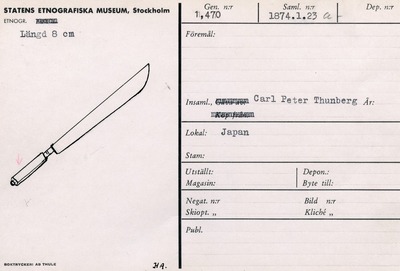 STATENS ETNOGRAFISKA MUSEUM, Stockholm
ETNOGR.
Längd 8 cm
BOKTRYCKERI AB THULE
H.A.
Gen. n:r
11,470
Saml. n:r
1874.1.23 a-
Dep. n:r
Föremål:
Insaml., Carl Peter Thunberg År:
Lokal: Japan
Stam:
Utställt:
Depon.:
Magasin:
Byte till:
Negat. n:r
Bild n:r
Skiopt. „
Kliché „
Publ.